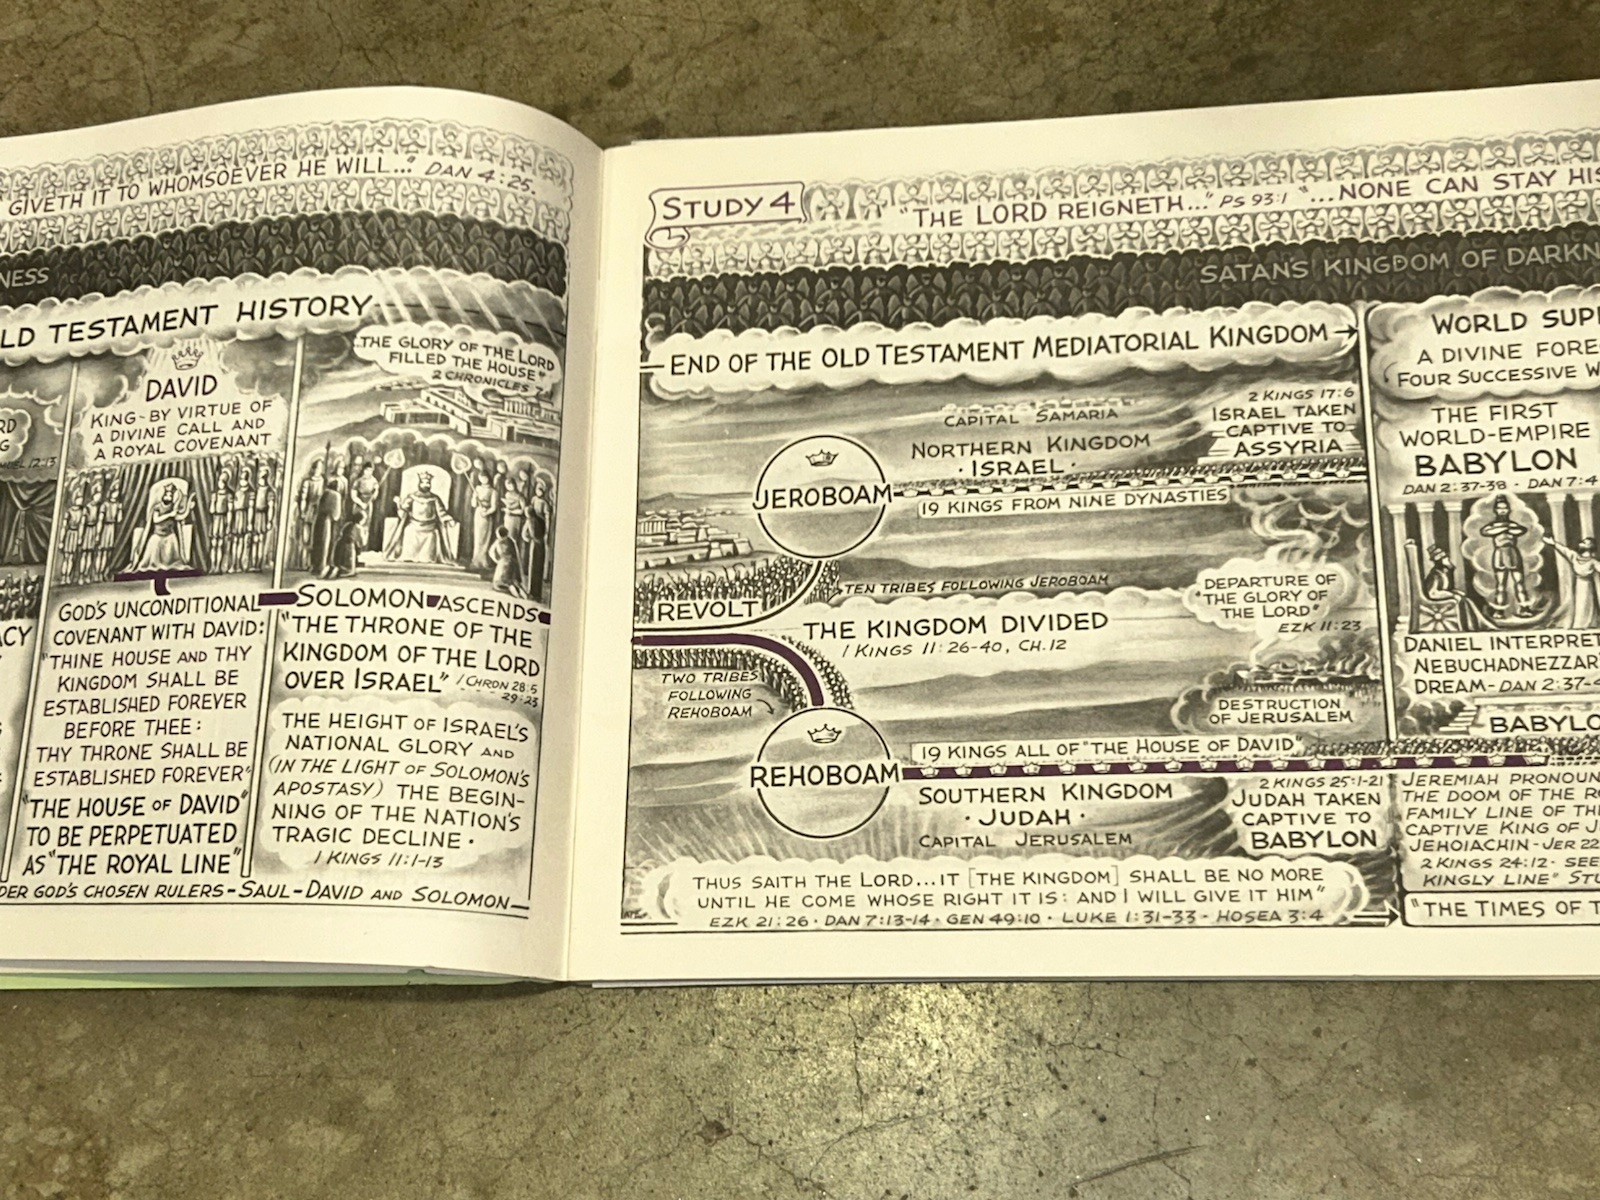 GIVETH IT TO WHOMSOEVER HE WILL..." DAN 4:25.
NESS
LD TESTAMENT HISTORY
DAVID
KING-BY VIRTUE OF
A DIVINE CALL AND
A ROYAL COVENANT
GOD'S UNCONDITIONAL
COVENANT WITH DAVID:
"THINE HOUSE AND THY
KINGDOM SHALL BE
ESTABLISHED FOREVER
BEFORE THEE:
THY THRONE SHALL BE
ESTABLISHED FOREVER"
"THE HOUSE OF DAVID"
TO BE PERPETUATED
AS "THE ROYAL LINE"
"THE GLORY OF THE LORD
FILLED THE HOUSE"
2 CHRONICLES 7
SOLOMON ASCENDS
"THE THRONE OF THE
KINGDOM OF THE LORD
OVER ISRAEL" 1 CHRON 28:5
29:23
THE HEIGHT OF ISRAEL'S
NATIONAL GLORY AND
(IN THE LIGHT OF SOLOMON'S
APOSTASY) THE BEGIN-
NING OF THE NATION'S
TRAGIC DECLINE.
1 KINGS 11:1-13
DER GOD'S CHOSEN RULERS-SAUL-DAVID AND SOLOMON
STUDY 4
"THE LORD REIGNETH..." PS 93:1 "...NONE CAN STAY HIS
SATAN'S KINGDOM OF DARKN
END OF THE OLD TESTAMENT MEDIATORIAL KINGDOM
CAPITAL SAMARIA
NORTHERN KINGDOM
· ISRAEL ·
2 KINGS 17:6
ISRAEL TAKEN
CAPTIVE TO
ASSYRIA
JEROBOAM
19 KINGS FROM NINE DYNASTIES
TEN TRIBES FOLLOWING JEROBOAM
REVOLT
THE KINGDOM DIVIDED
1 KINGS 11:26-40, CH.12
DEPARTURE OF
"THE GLORY OF
THE LORD"
EZK 11:23
TWO TRIBES
FOLLOWING
REHOBOAM
DESTRUCTION
OF JERUSALEM
19 KINGS ALL OF "THE HOUSE OF DAVID"
REHOBOAM
SOUTHERN KINGDOM
· JUDAH ·
CAPITAL JERUSALEM
2 KINGS 25:1-21
JUDAH TAKEN
CAPTIVE TO
BABYLON
THUS SAITH THE LORD...IT [THE KINGDOM] SHALL BE NO MORE
UNTIL HE COME WHOSE RIGHT IT IS: AND I WILL GIVE IT HIM"
EZK 21:26 · DAN 7:13-14 · GEN 49:10 · LUKE 1:31-33 · HOSEA 3:4
WORLD SUP
A DIVINE FORE
FOUR SUCCESSIVE W
THE FIRST
WORLD-EMPIRE
BABYLON
DAN 2:37-38 · DAN 7:4
DANIEL INTERPRET
NEBUCHADNEZZAR'
DREAM-DAN 2:37-4
BABYLO
JEREMIAH PRONOUN
THE DOOM OF THE RO
FAMILY LINE OF THE
CAPTIVE KING OF J
JEHOIACHIN-JER 22
2 KINGS 24:12· SEE
KINGLY LINE" STU
"THE TIMES OF T